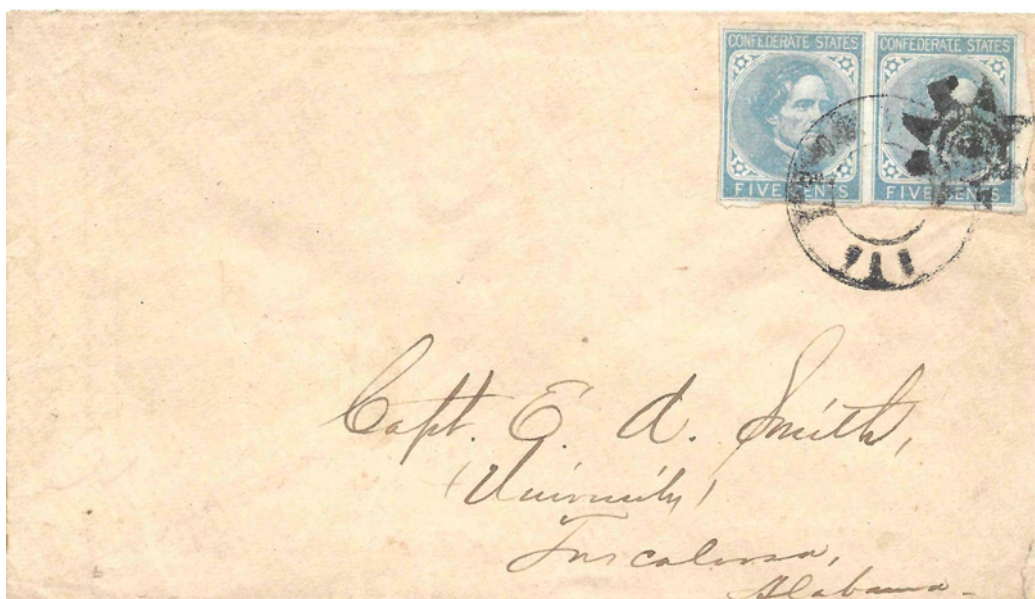 CONFEDERATE STATES CONFEDERATE STATES
FIVE CENTS FIVE CENTS
Capt. E. A. Smith,
(University)
Tuscaloosa,
Alabama